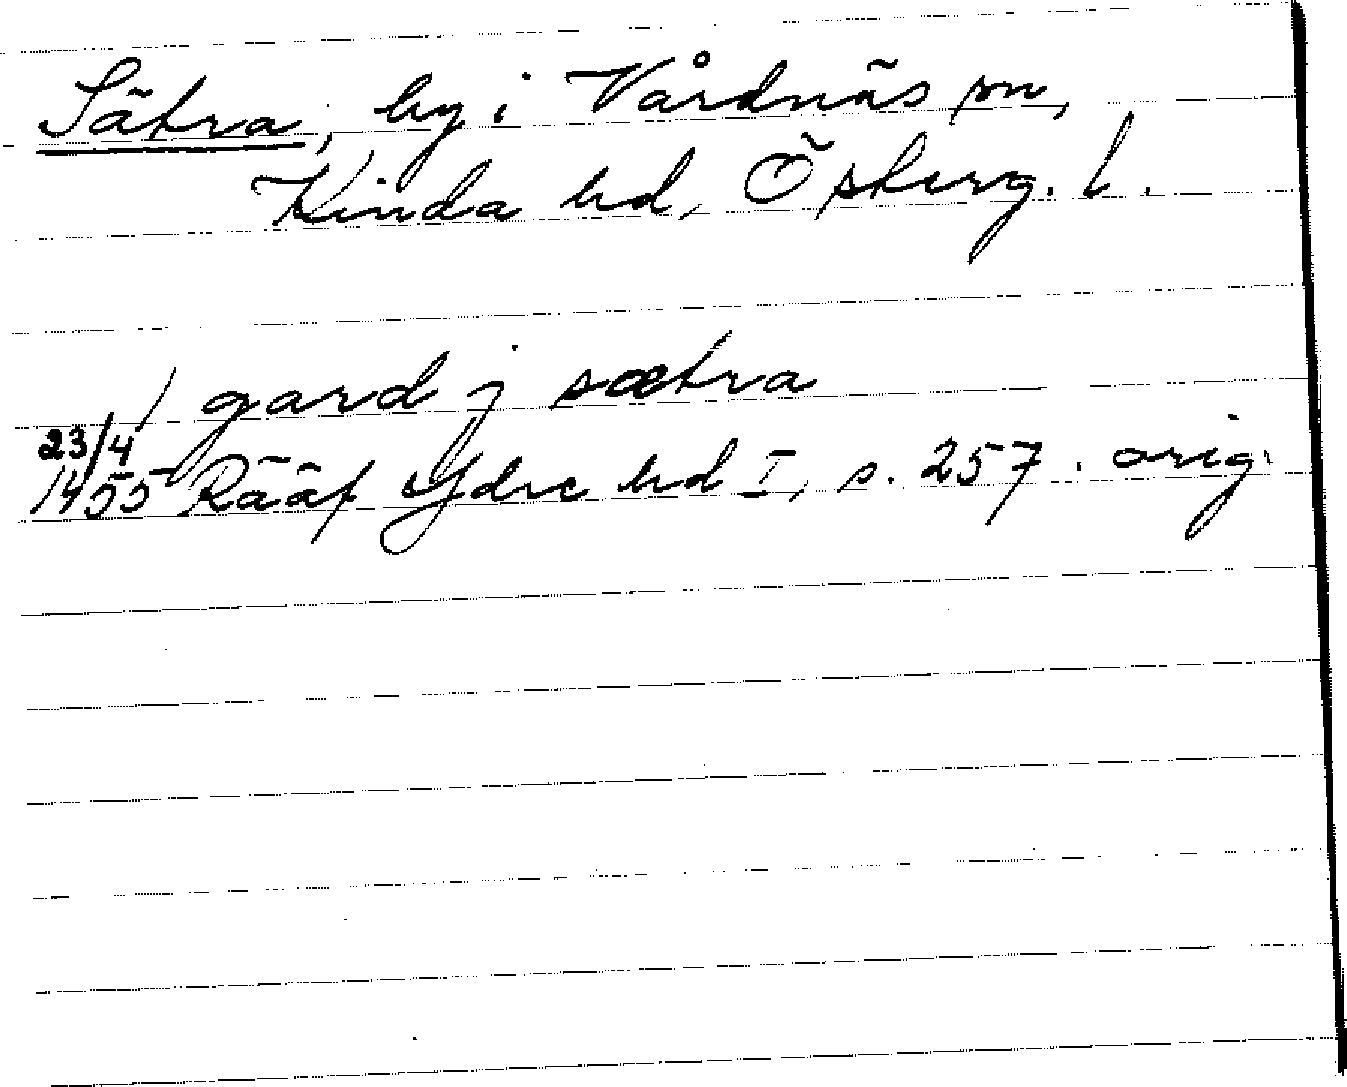 Sätra, by i Vårdnäs sn,
Kinda hd, Österg. l.
) gard j sætra
23/4
1455 Rääf Ydre hd I, s. 257. orig.